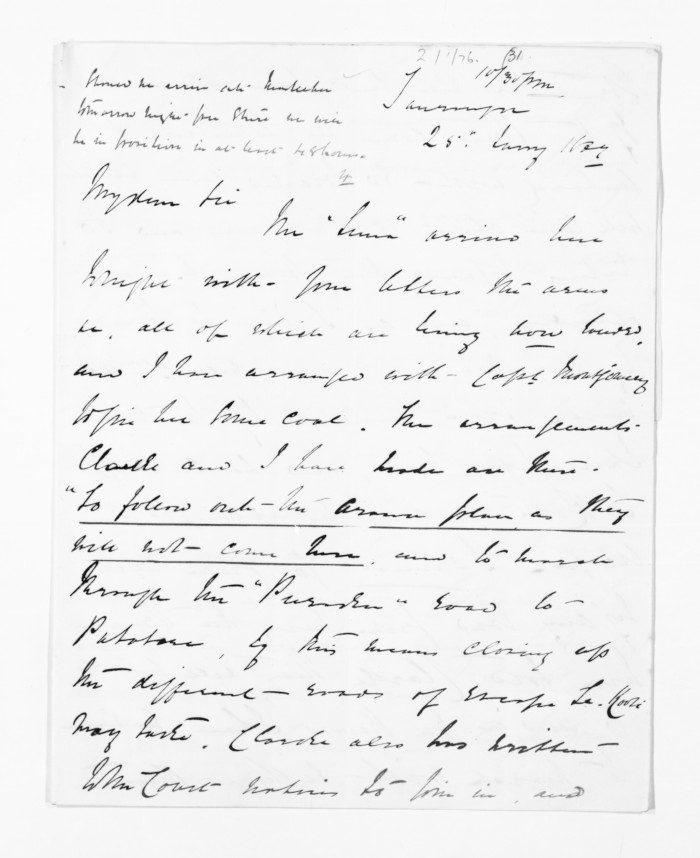 10/30 pm
Tauranga
25th Jany 1870
Should he arrive at
tomorrow night from there we will
be in position in at least 48 hours
My dear Sir
The "Luna" arrived here
tonight with your letters the arms
&c, all of which are being now landed,
and I have arranged with Capt. Montgomery
to give her some coal. The arrangements
Clarke and I have made are these.
"To follow out the Arawa plan as they
will not come here, and to march
through the "" road to
Patetere, by this means closing up
the different roads of escape Te Kooti
may take. Clarke also has written
to the Coast natives to join in, and